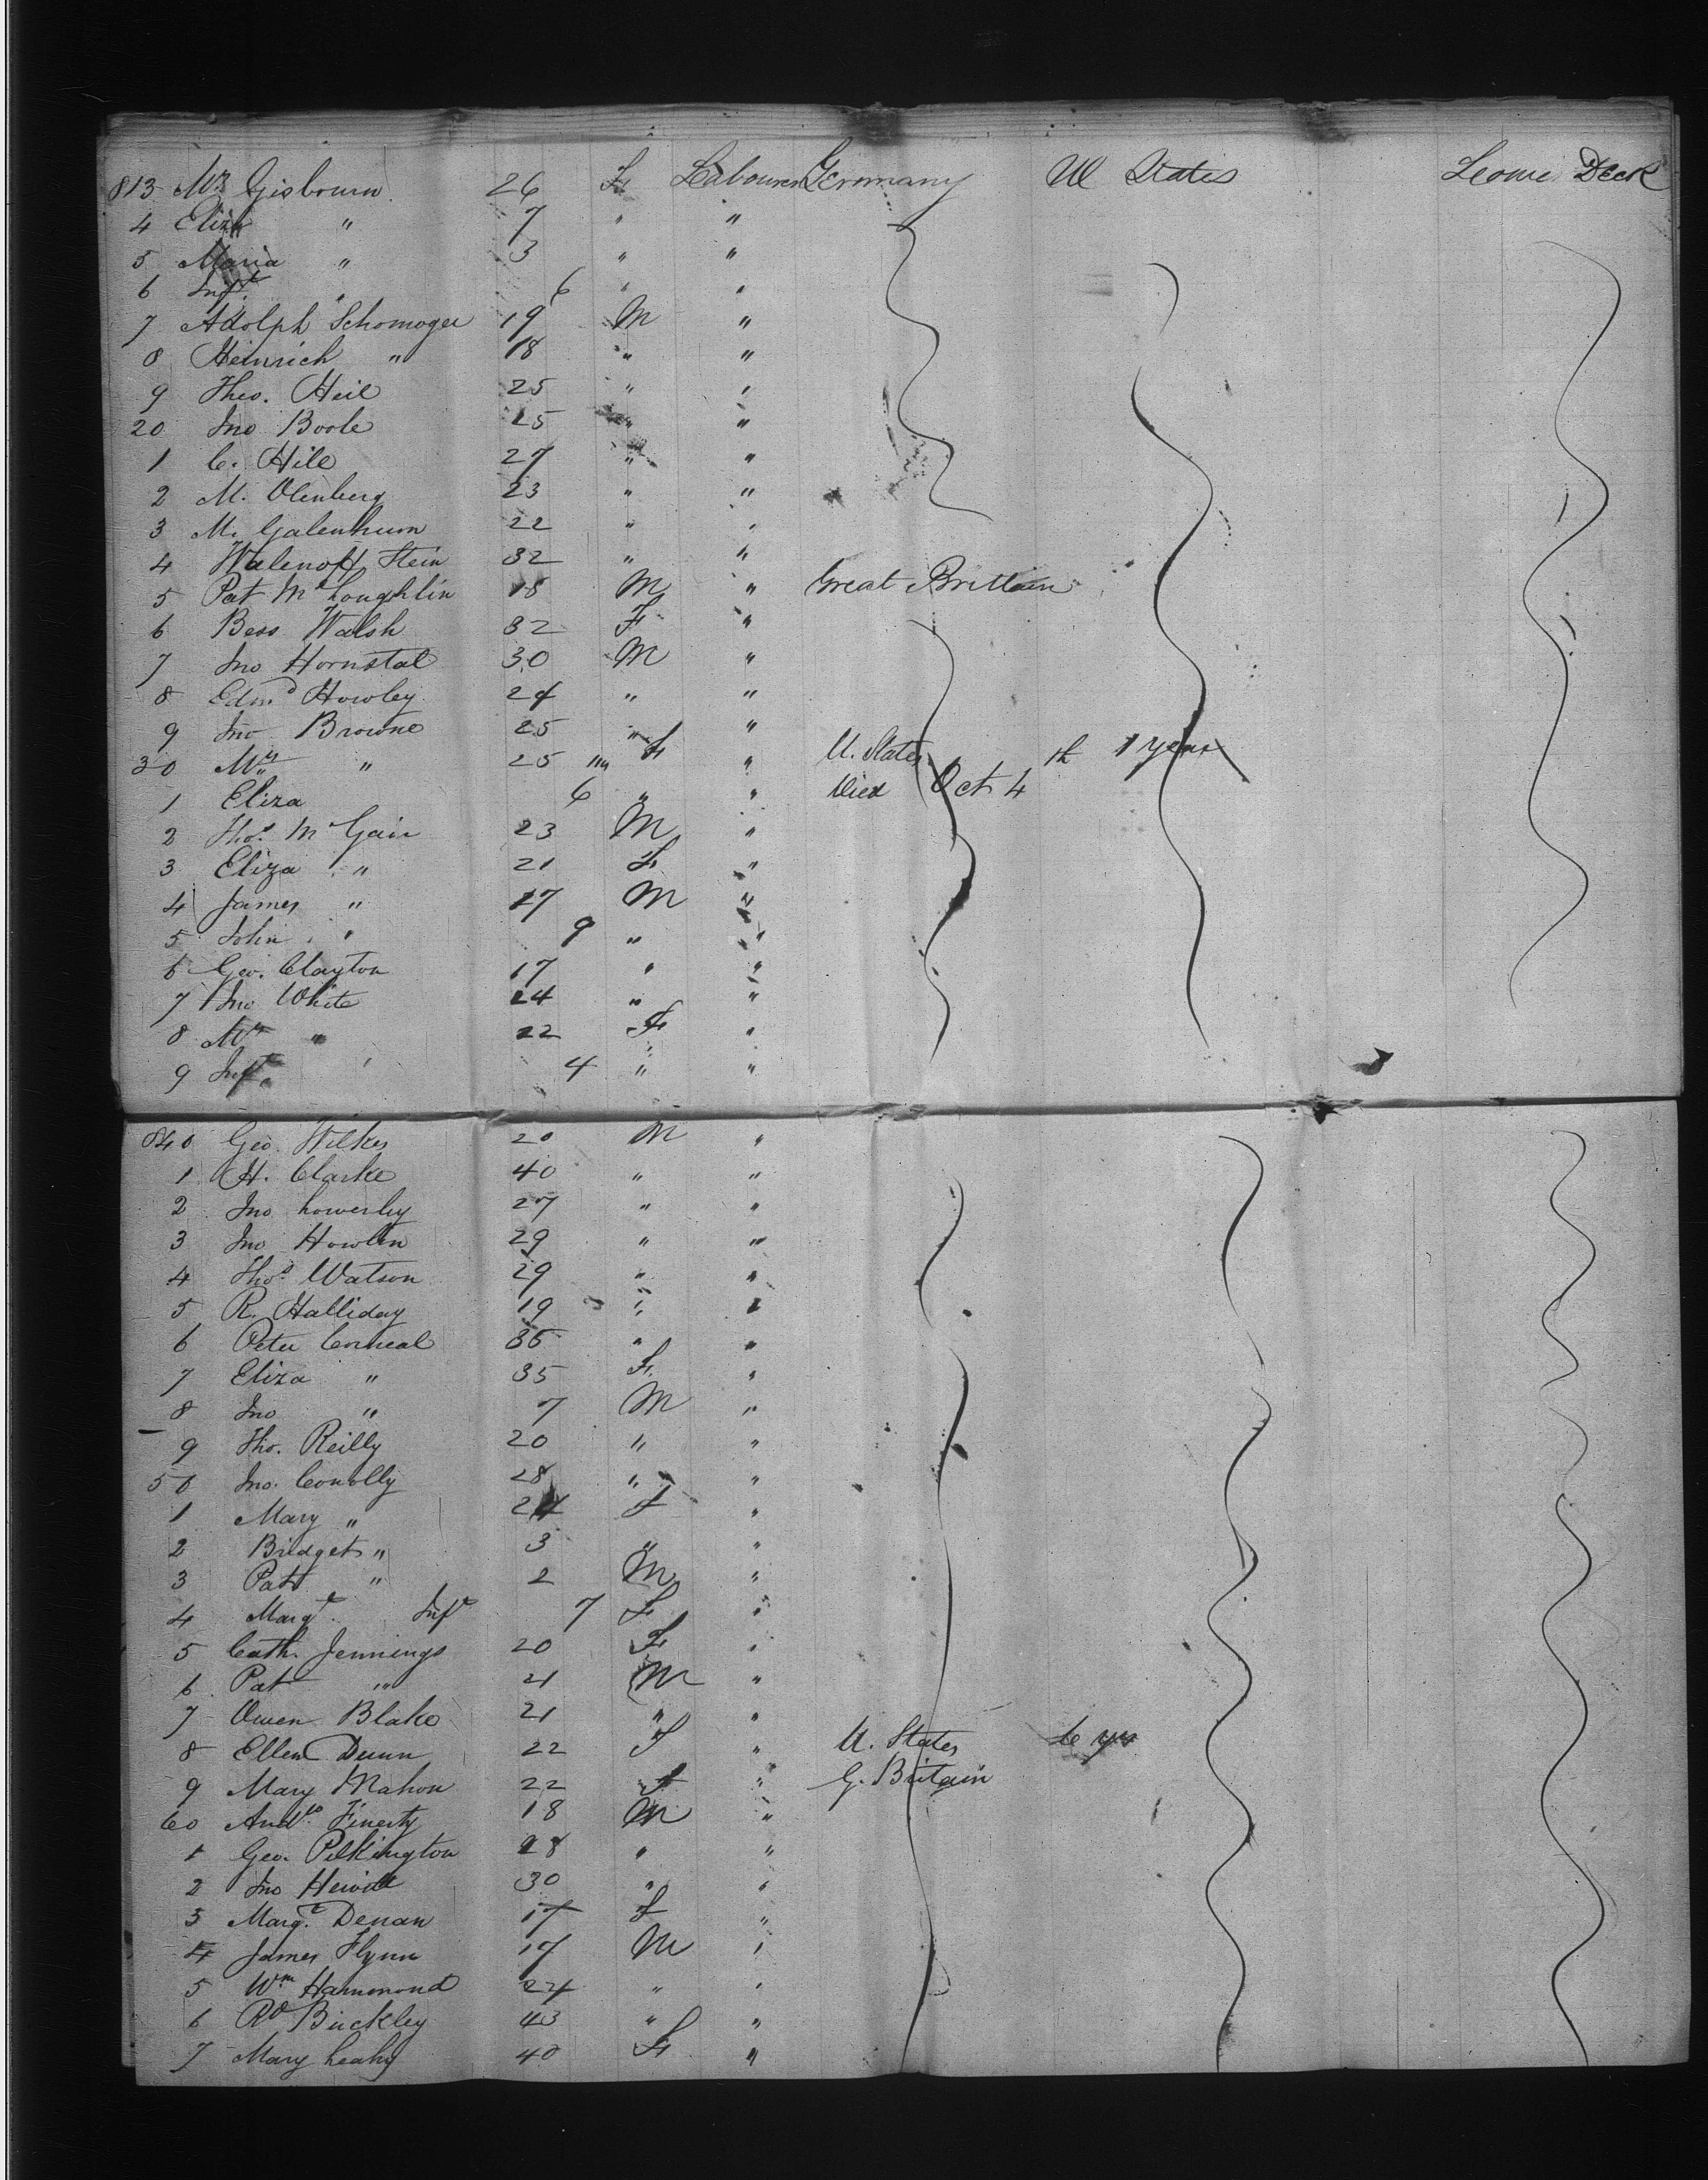 813 Mrs Gisbourn 26 F Labourer Germany U States Lower Deck
4 Eliza " 7 " "
5 Maria " 3 " "
6 Inft " 6 " "
7 Adolph Schomoger 19 M "
8 Heinrich " 18 " "
9 Theo. Heil 25 " "
20 Jno Boole 25 " "
1 C. Hile 27 " "
2 M. Olenberg 23 " "
3 M. Galenhum 22 " "
4 Walenoff Stein 32 " "
5 Pat McLoughlin 18 M " Great Brittain
6 Bess Walsh 32 F "
7 Jno Hornstal 30 M "
8 Edmd Howley 24 " "
9 Jno Browne 25 " "
30 Mrs " 25 F " U. States 1 year
1 Eliza 6 " " Died Oct 4th
2 Thos McGair 23 M "
3 Eliza " 21 F "
4 James " 17 M "
5 John " 9 " "
6 Geo. Clayton 17 " "
7 Jno White 24 " "
8 Mrs " 22 F "
9 Inft " 4 " "
840 Geo. Wilkes 20 M "
1 H. Clarke 40 " "
2 Jno Lowerby 27 " "
3 Jno Howlin 29 " "
4 Thos Watson 29 " "
5 R. Halliday 19 " "
6 Peter Corneal 35 " "
7 Eliza " 35 F "
8 Jno " 7 M "
9 Tho. Reilly 20 " "
50 Jno. Conolly 28 " "
1 Mary " 24 F "
2 Bridget " 3 " "
3 Pat " 2 M "
4 Margt Inft 7 F "
5 Cath. Jennings 20 F "
6 Pat " 21 M "
7 Owen Blake 21 " "
8 Ellen Dunn 22 F " U. States 6 yrs
9 Mary Mahon 22 F " G. Britain
60 Andw Finerty 18 M "
1 Geo. Pilkington 28 " "
2 Jno Hewitt 30 " "
3 Margt Denan 17 F "
4 James Flynn 17 M "
5 Wm Hammond 24 " "
6 Rd Buckley 43 " "
7 Mary Leahy 40 F "